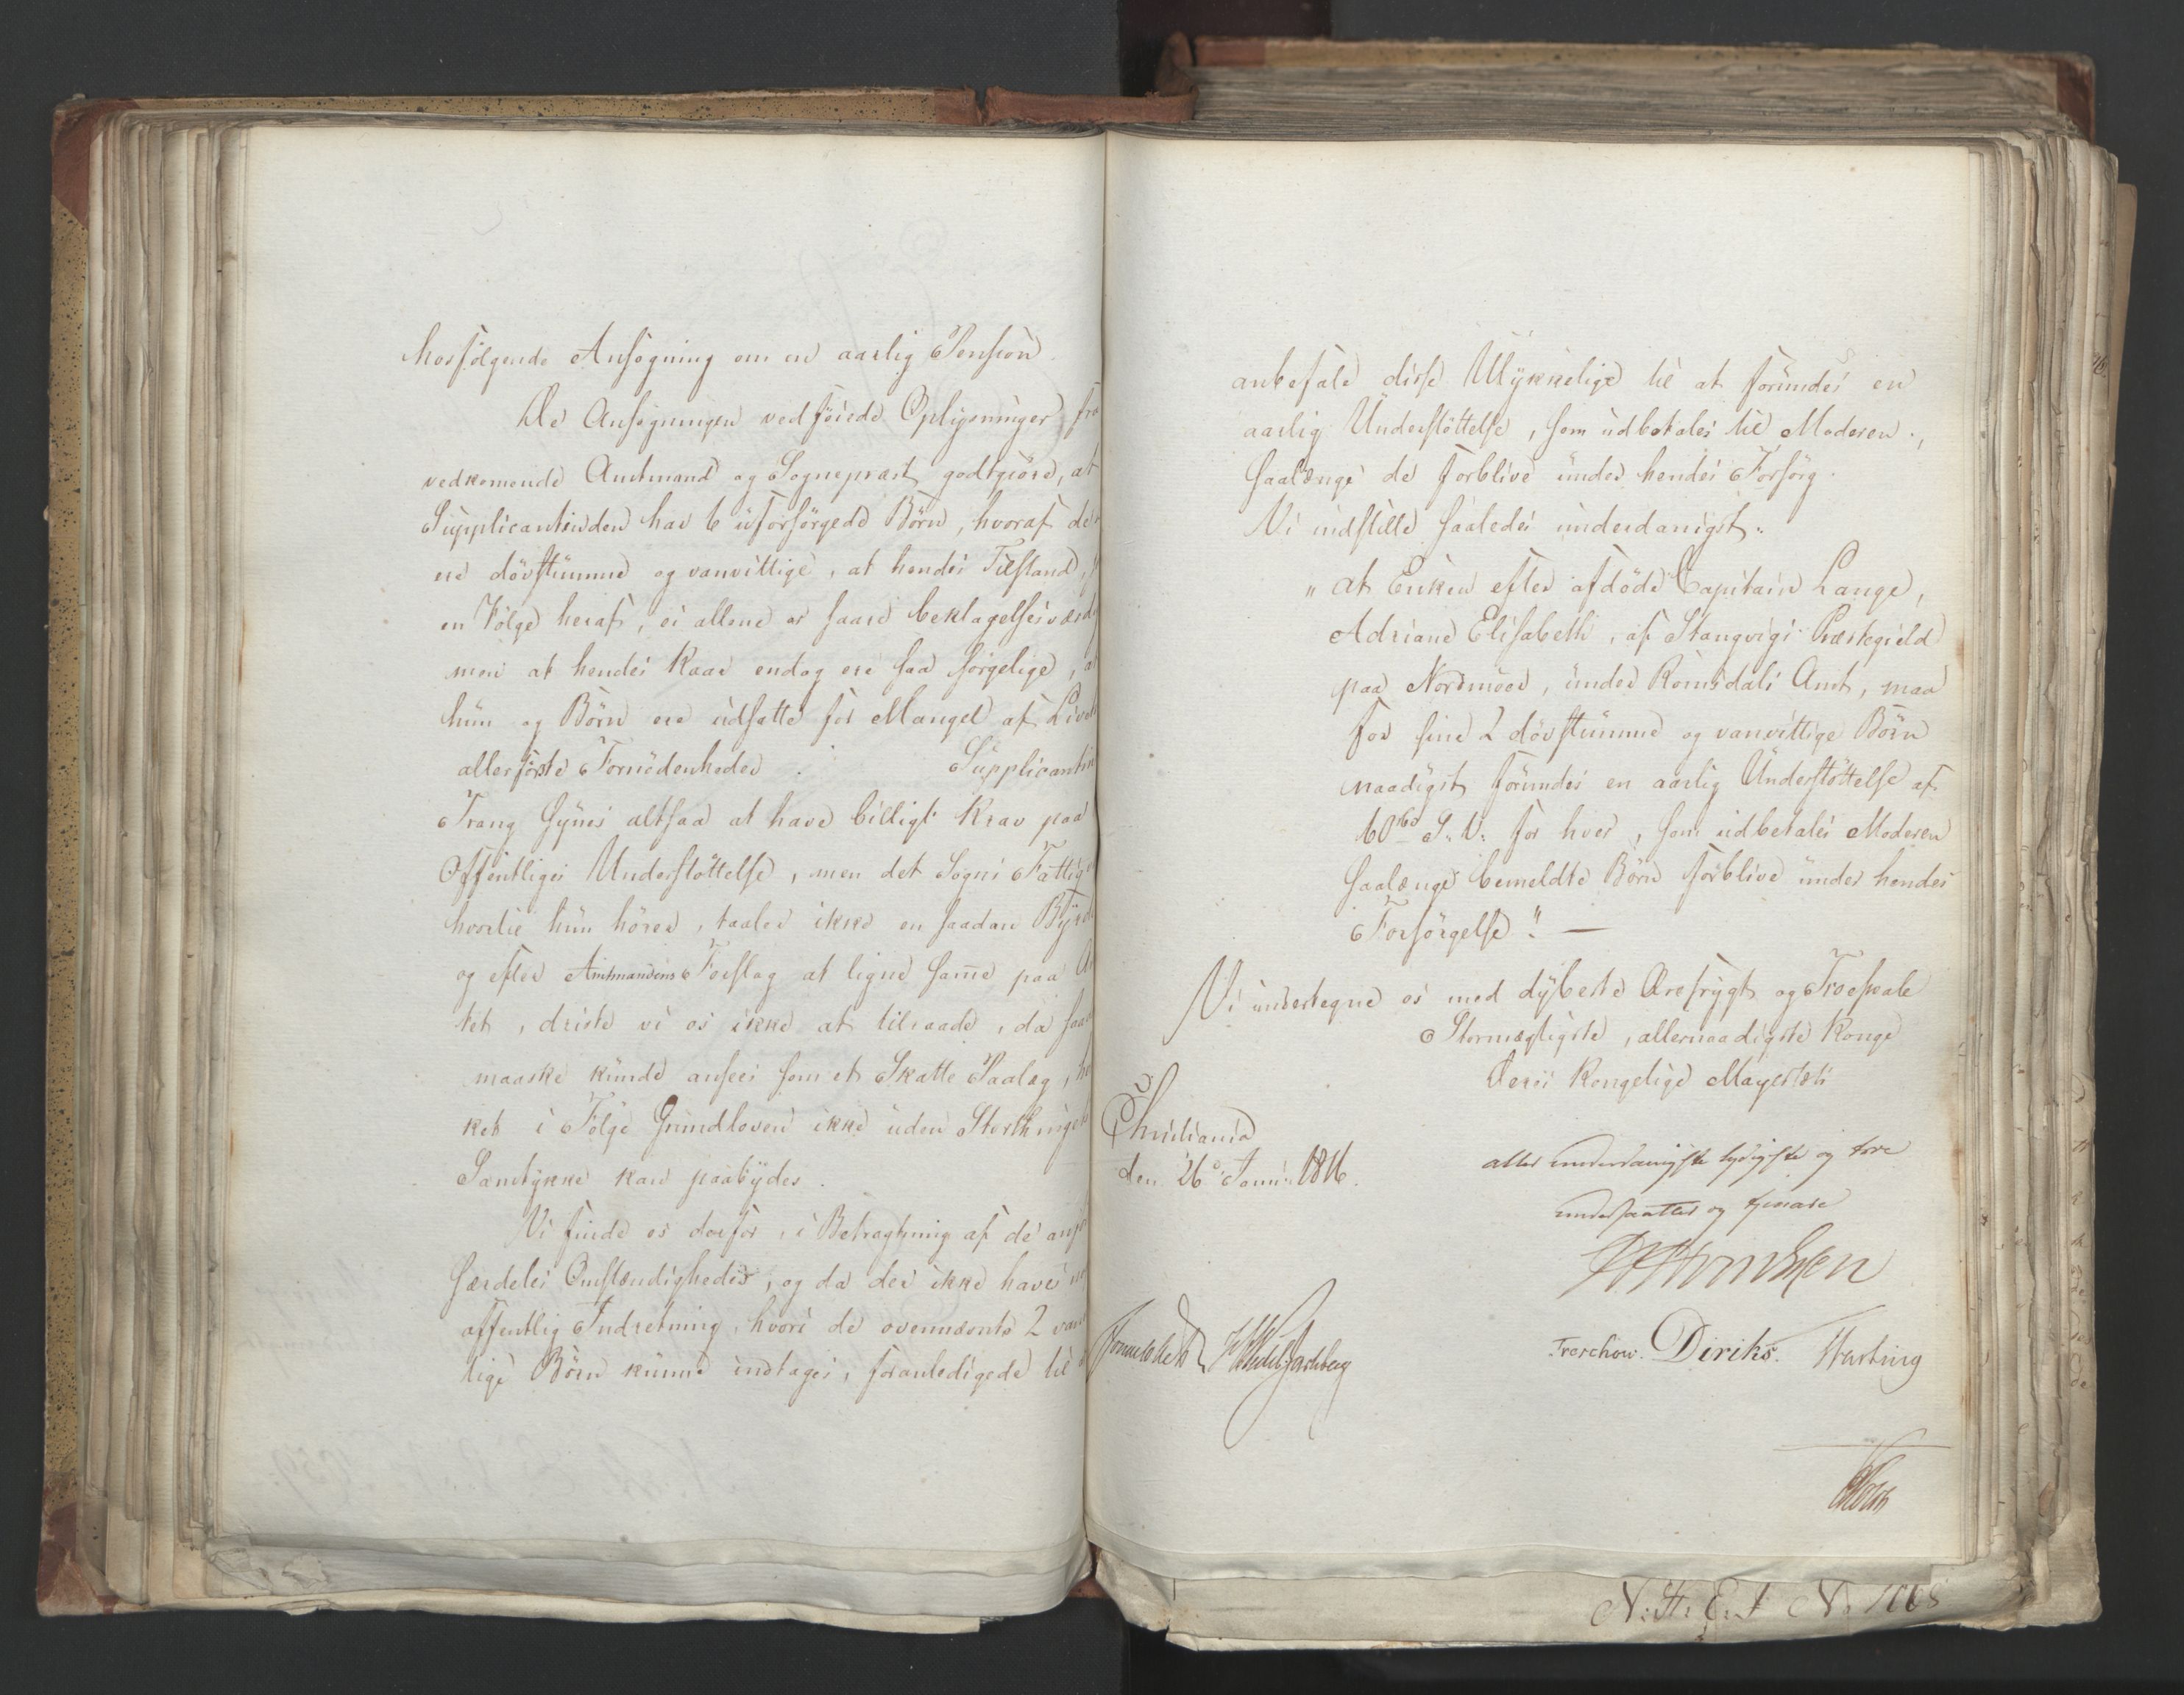 hosfølgende Ansøgning om en aarlig Pension.
De Ansøgningen vedføiede Oplysninger fra
vedkomende Amtmand og Sognepræst godtgiøre, at
Supplicantinden har 6 uforsørgede Børn, hvoraf de
ere døvstumme og vanvittige, at hendes Tilstand,
en Følge heraf, ei allene er saare beklagelsesværdig
men at hendes Kaar endog ere saa sørgelige, at
hun og Børn ere udsatte for Mangel af Livets
allerførste Fornødenheder. Supplicantin
Trang synes altsaa at have billigt Krav paa
Offentliges Understøttelse, men det Sogns Fattig
hvortil hun hører, taaler ikke en saadan Byrde
og efter Amtmandens Forslag at ligne same paa Am
tet, driste vi os ikke at tilraade, da saa
maaske kunde ansees som et Skatte Paalæg, hvil
ket i Følge Grundloven ikke uden Storthingets
Samtykke kan paabydes.
Vi finde os derfor, i Betragtning af de anf
særdeles Omstændigheder, og da der ikke haves no
offentlig Indretning, hvori de ovennævnte 2 vanv
tige Børn kunne indtages, foranledigede til
anbefale disse Ulykkelige til at forundes en
aarlig Understøttelse, som udbetales til Moderen,
saalænge de forblive under hendes Forsørg.
Vi indstille saaledes underdanigst:
"at Enken efter afdøde Capitain Lange,
Adriane Elisabeth, af Stangvigs Præstegield
paa Nordmøer, under Romsdals Amt, maa
for sine 2 døvstumme og vanvittige Børn
naadigst forundes en aarlig Understøttelse af
60 rbd S. V. for hver, som udbetales Moderen
saalænge bemeldte Børn forblive under hendes
Forsørgelse." —
Vi undertegne os med dybeste Ærefrygt og Troeskab
Stormægtigste, allernaadigste Konge
Deres Kongelige Mayestæts
Christiania
den 26de Janu: 1816.
aller underdanigste lydigste og troe
undersaatter og tjenere
Sommerhielm HWedelJarlsberg
Treschow. Diriks. Hartung
N: St: E: J No 1068